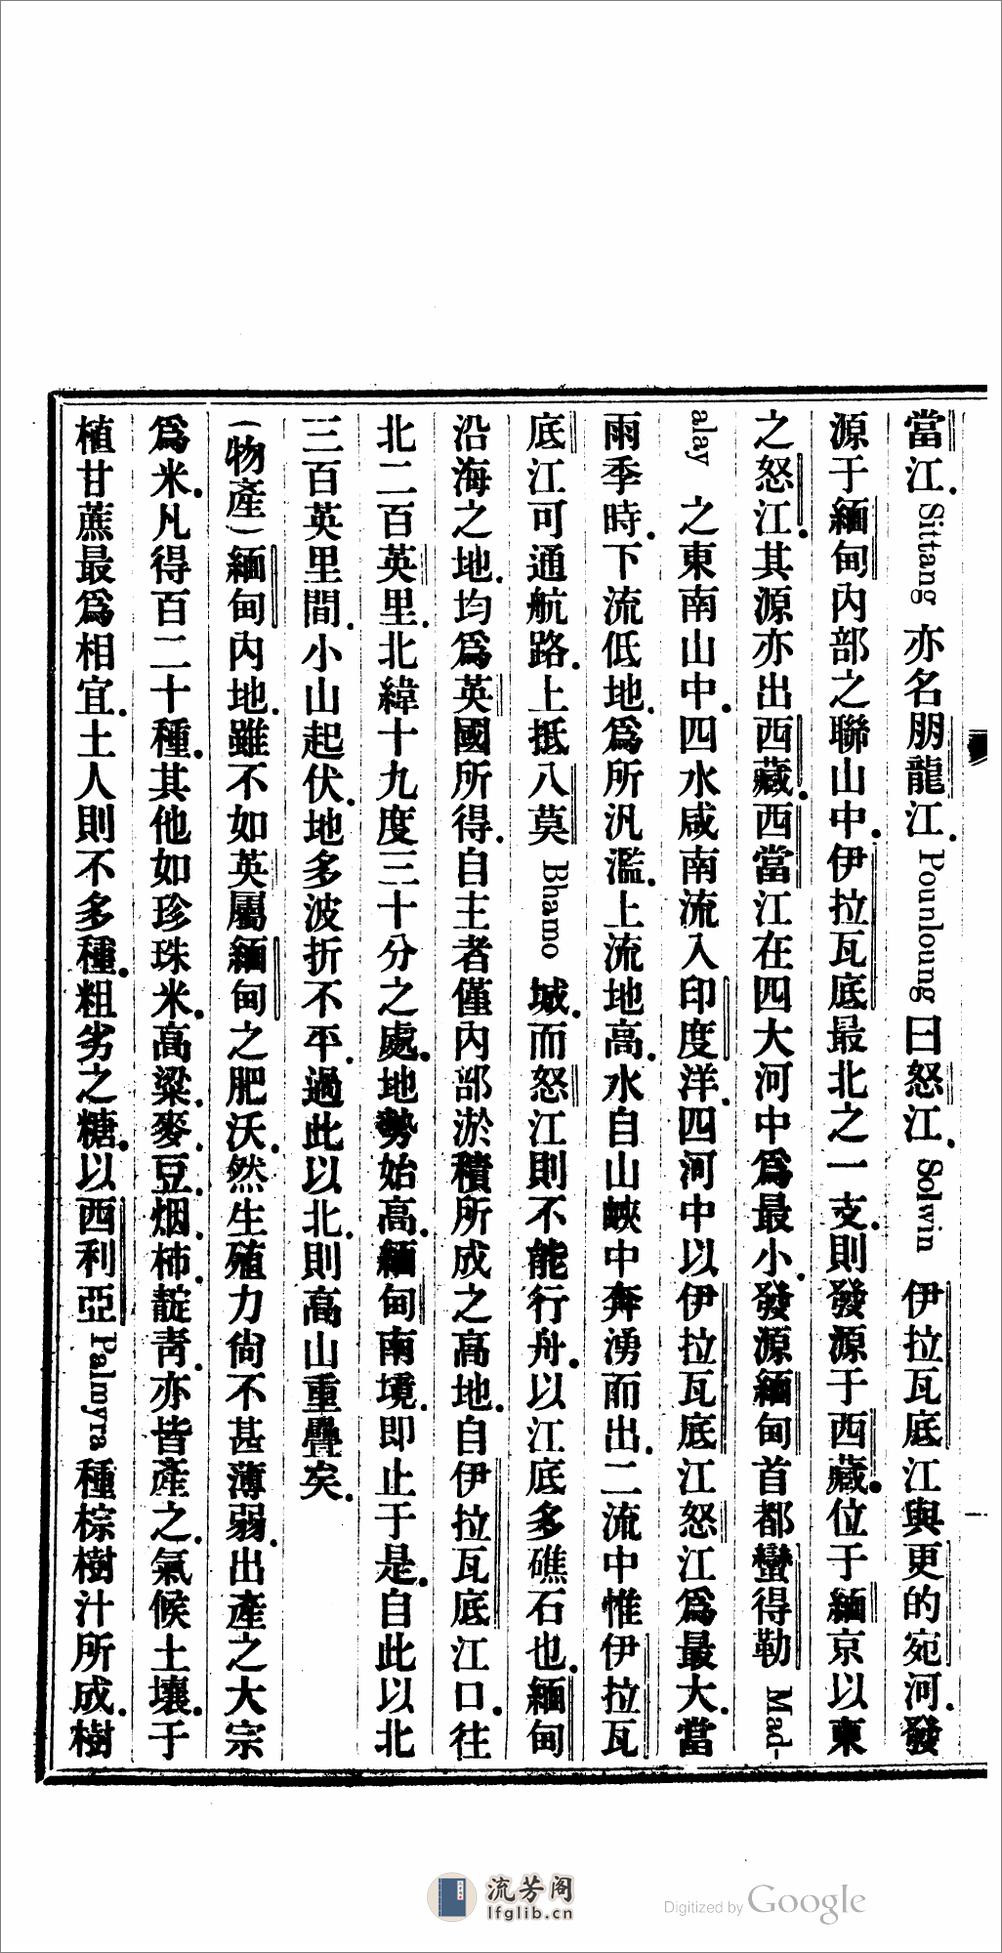 當江。Sittang 亦名朋龍江。Pounloung 曰怒江。Solwin 伊拉瓦底江與更的宛河。發
源于緬甸內部之聯山中。伊拉瓦底最北之一支。則發源于西藏。位于緬京以東
之怒江。其源亦出西藏。西當江在四大河中爲最小。發源緬甸首都蠻得勒 Mad-
alay 之東南山中。四水咸南流入印度洋。四河中以伊拉瓦底江怒江爲最大。當
雨季時。下流低地。爲所汎濫。上流地高。水自山峽中奔湧而出。二流中惟伊拉瓦
底江可通航路。上抵八莫 Bhamo 城。而怒江則不能行舟。以江底多礁石也。緬甸
沿海之地。均爲英國所得。自主者僅內部淤積所成之高地。自伊拉瓦底江口。往
北二百英里。北緯十九度三十分之處。地勢始高。緬甸南境。即止于是。自此以北
三百英里間。小山起伏。地多波折不平。過此以北。則高山重疊矣。
(物產)緬甸內地。雖不如英屬緬甸之肥沃。然生殖力尙不甚薄弱。出產之大宗
爲米。凡得百二十種。其他如珍珠米。高粱。麥。豆。烟。柿。靛青。亦皆產之。氣候土壤。于
植甘蔗最爲相宜。土人則不多種。粗劣之糖。以西利亞 Palmyra 種棕樹汁所成。樹
流芳阁
lfglib.cn
Digitized by Google